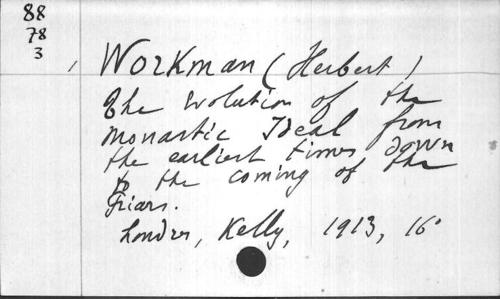 88
78
3
Workman (Herbert)
The Evolution of the
Monastic Ideal from
the earliest times down
to the coming of the
Friars.
Londres, Kelly, 1913, 16°